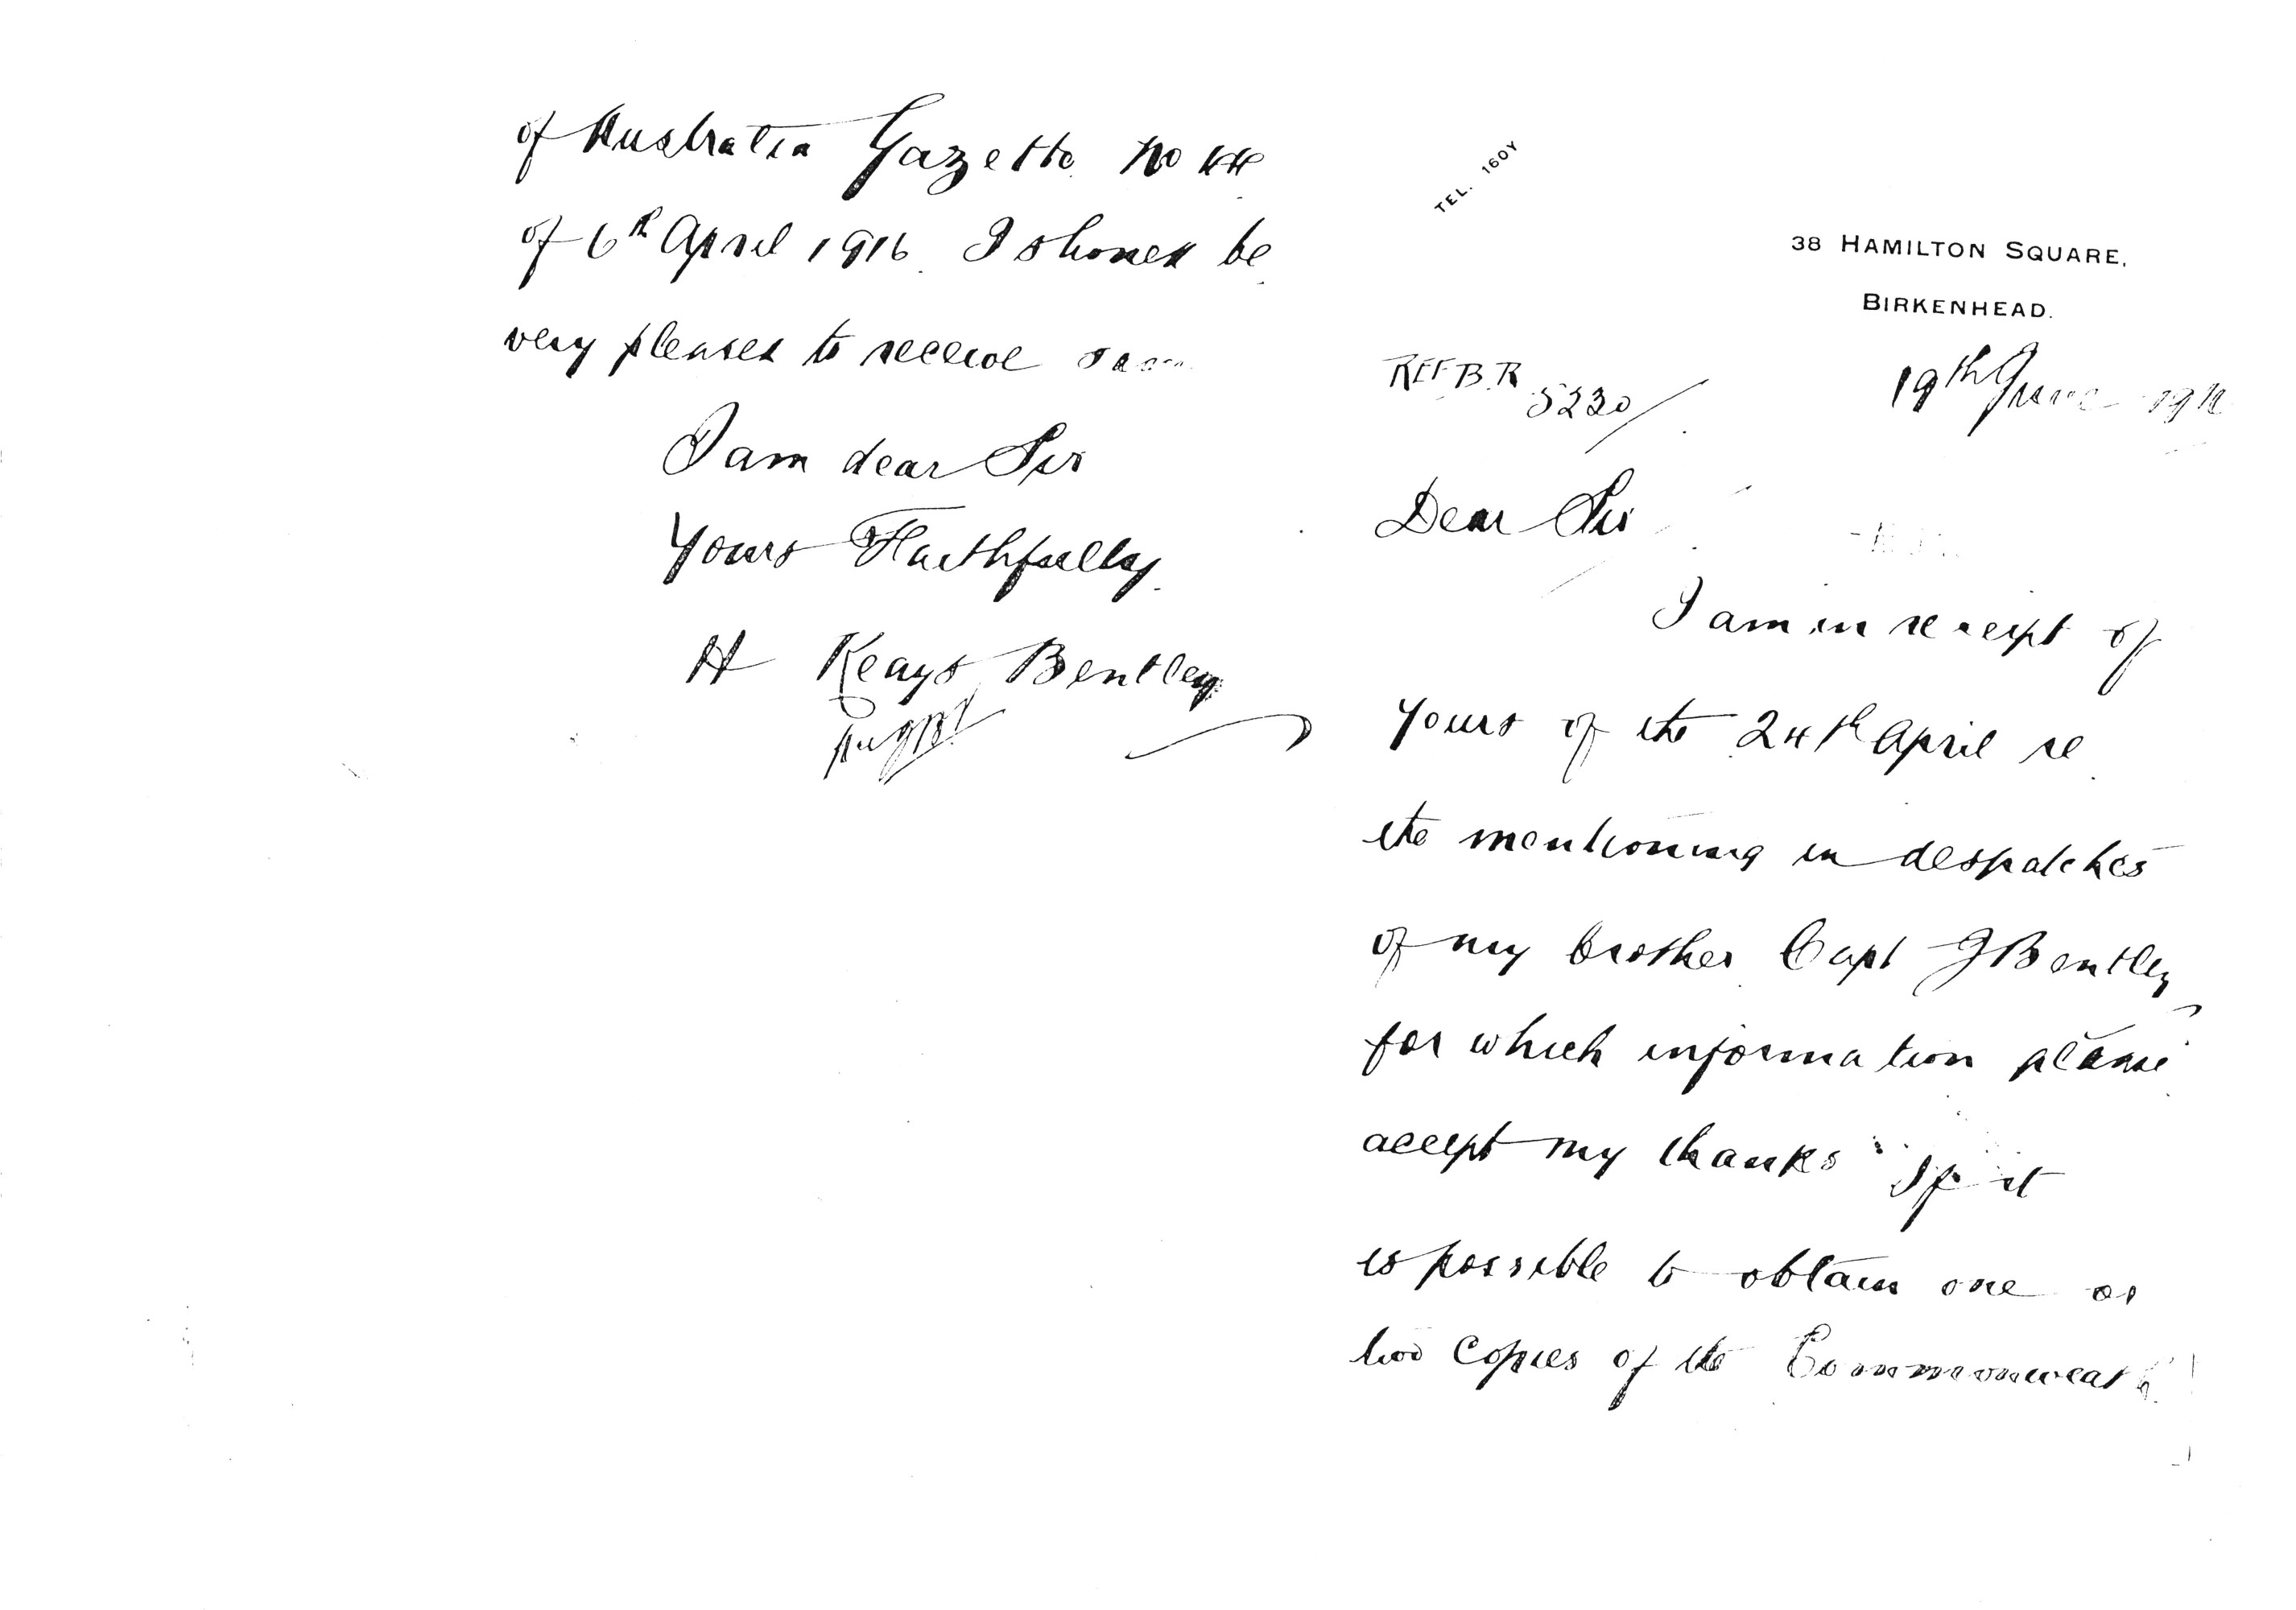 TEL. 160Y
38 HAMILTON SQUARE,
BIRKENHEAD.
REF B.R
5230/
19th June
Dear Sir
I am in receipt of
yours of the 24th April re
the mentioning in despatches
of my brother Capt J Bentley
for which information please
accept my thanks If it
is possible to obtain one or
two copies of the Commonweath
of Australia Gazette No 44
of 6th April 1916. I should be
very pleased to receive
I am dear Sir
Yours Faithfully
H Keays Bentley